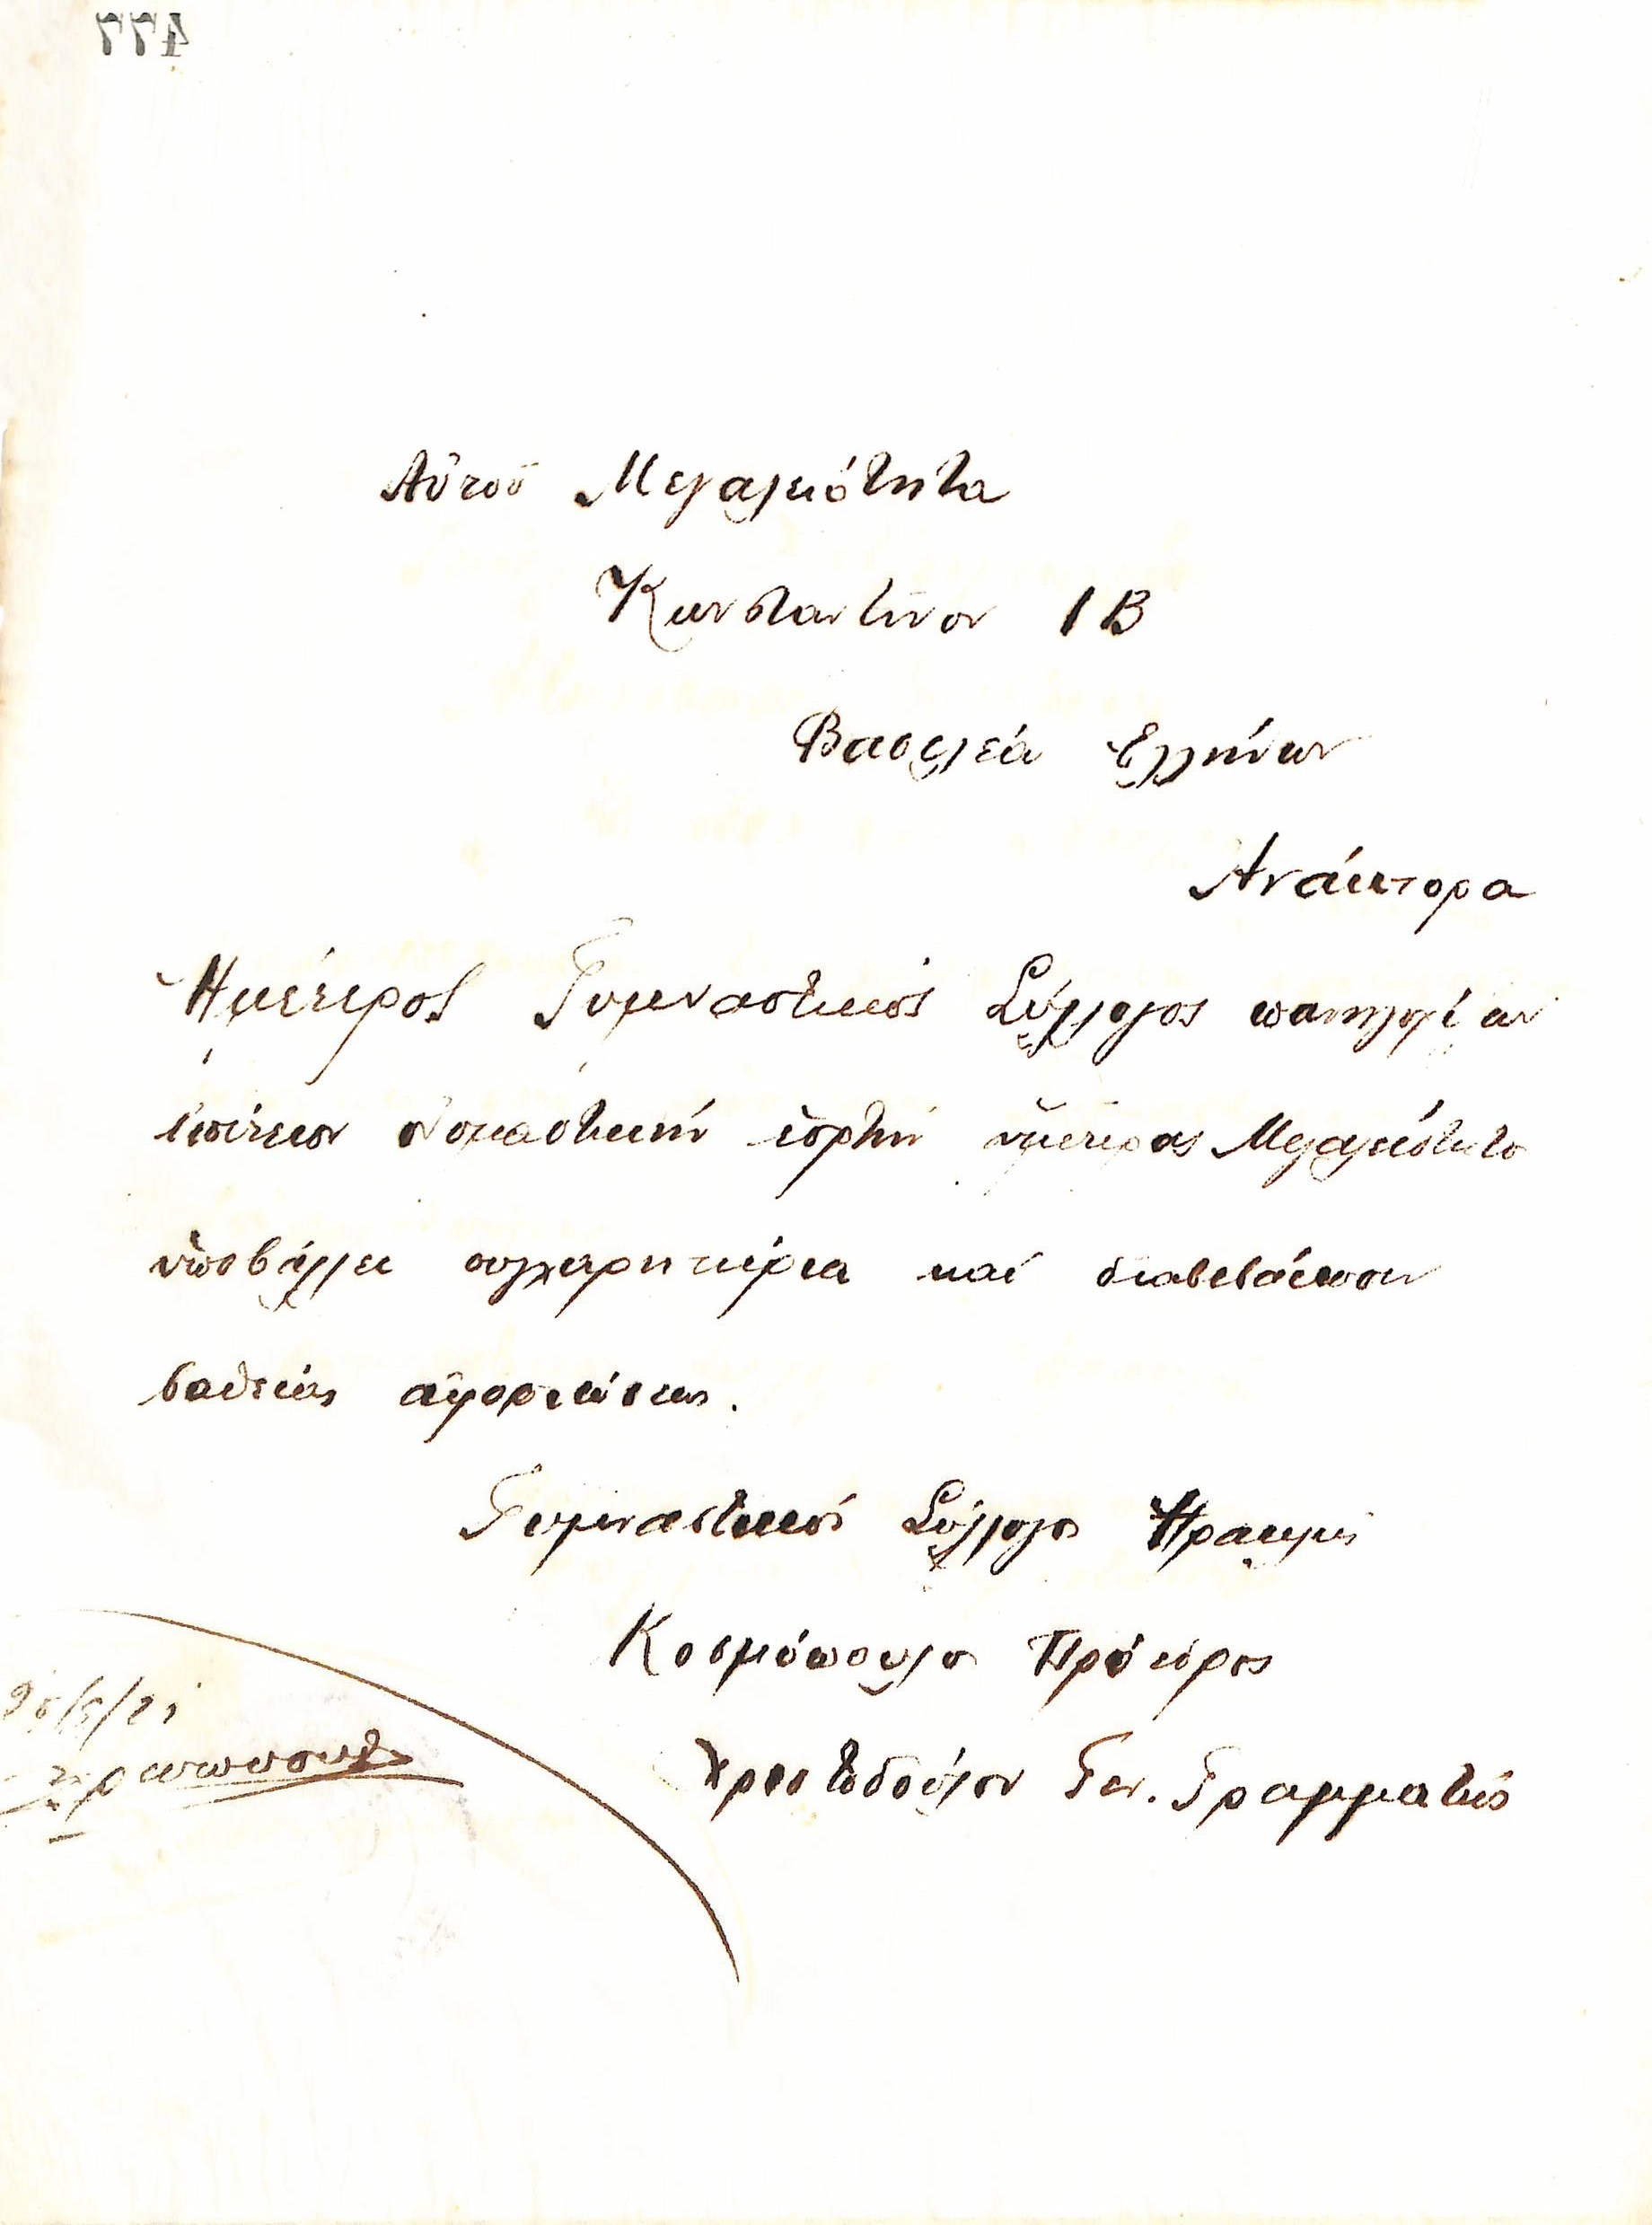 477
Αὐτοῦ Μεγαλειότητα
Κωνσταντῖνον ΙΒ
Βασιλέα Ἑλλήνων
Ἀνάκτορα
Ἡμέτερος Γυμναστικός Σύλλογος
ἐπέτειον ὀνομαστικήν ἑορτήν ὑμετέρας Μεγαλειότητος
ὑποβάλλει συγχαρητήρια καί διαβεβαίωσιν
βαθείας ἀφοσιώσεως.
Γυμναστικός Σύλλογος Ἡρακλῆς
Κοσμόπουλος Πρόεδρος
Χριστοδούλου Γεν. Γραμματεύς
/5/21